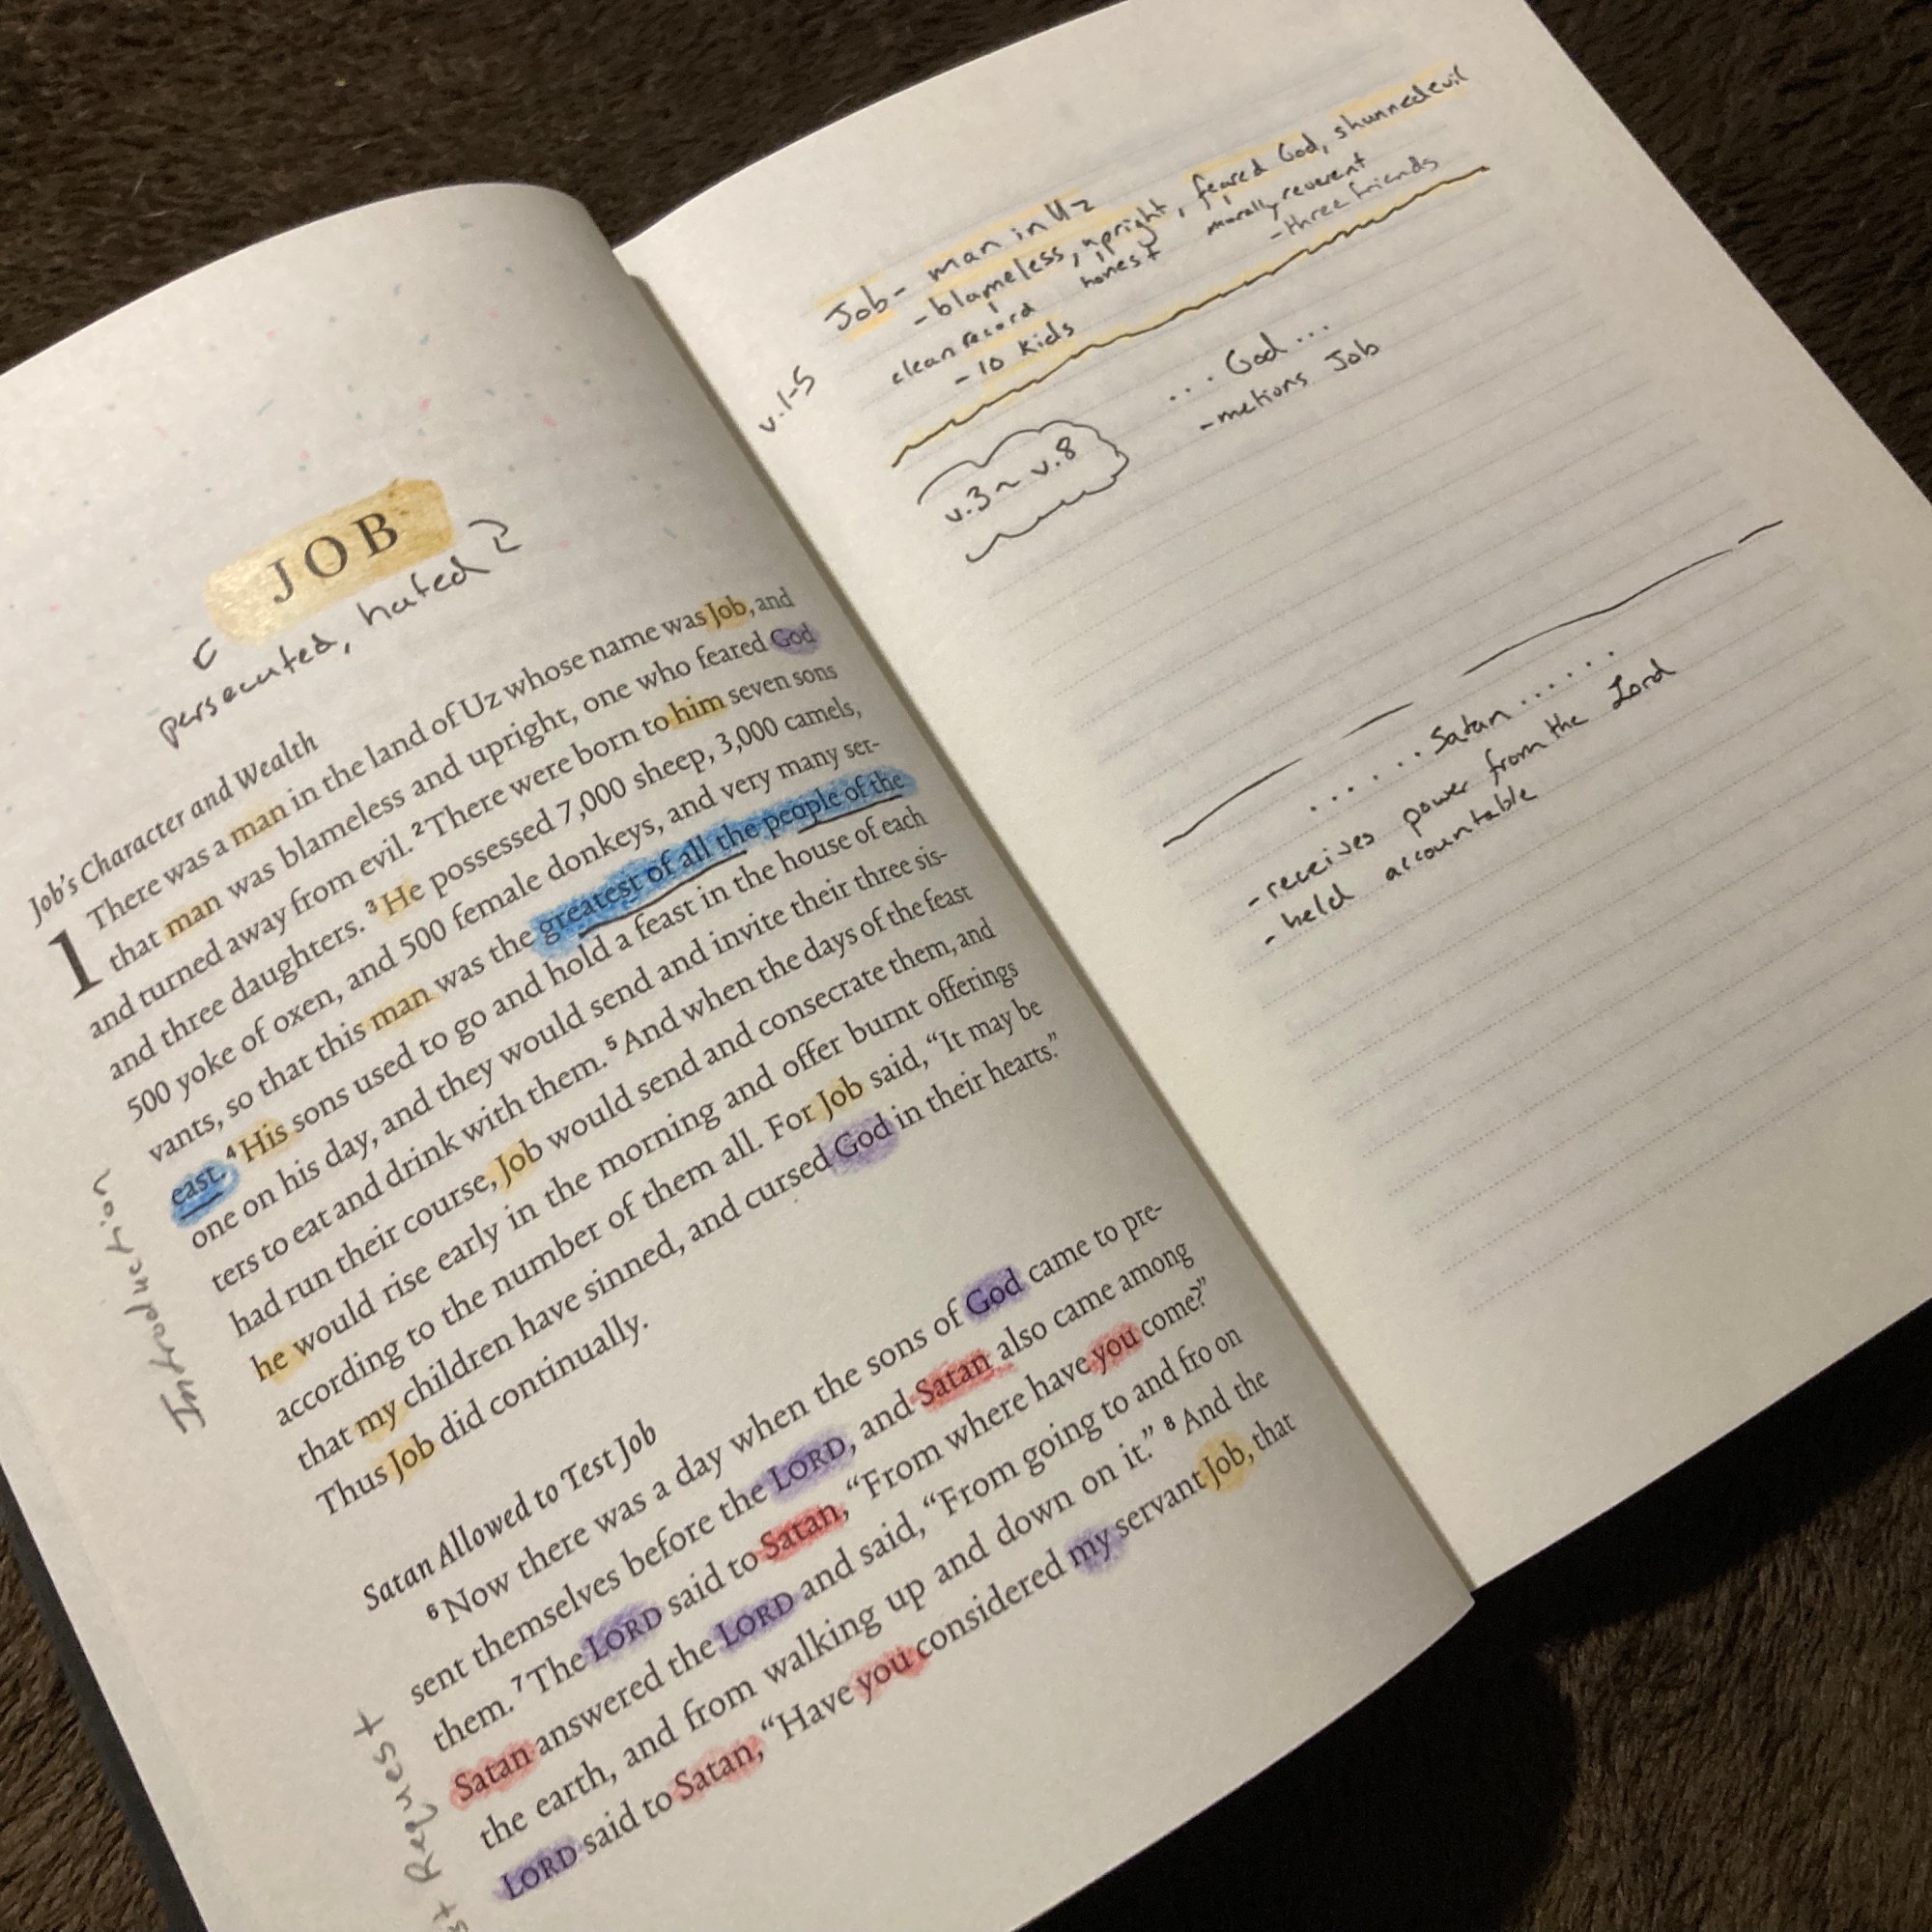 JOB
persecuted, hated
Job's Character and Wealth
1 There was a man in the land of Uz whose name was Job, and
that man was blameless and upright, one who feared God
and turned away from evil. 2 There were born to him seven sons
and three daughters. 3 He possessed 7,000 sheep, 3,000 camels,
500 yoke of oxen, and 500 female donkeys, and very many ser-
vants, so that this man was the greatest of all the people of the
east. 4 His sons used to go and hold a feast in the house of each
one on his day, and they would send and invite their three sis-
ters to eat and drink with them. 5 And when the days of the feast
had run their course, Job would send and consecrate them, and
he would rise early in the morning and offer burnt offerings
according to the number of them all. For Job said, “It may be
that my children have sinned, and cursed God in their hearts.”
Thus Job did continually.
Introduction
Satan Allowed to Test Job
6 Now there was a day when the sons of God came to pre-
sent themselves before the LORD, and Satan also came among
them. 7 The LORD said to Satan, “From where have you come?”
Satan answered the LORD and said, “From going to and fro on
the earth, and from walking up and down on it.” 8 And the
LORD said to Satan, “Have you considered my servant Job, that
Request
v.1-5
Job - man in Uz
- blameless, upright, feared God, shunned evil
clean record honest morally reverent
- 10 kids - three friends
v.3 ~ v.8
... God ...
- metions Job
...... Satan ......
- receives power from the Lord
- held accountable